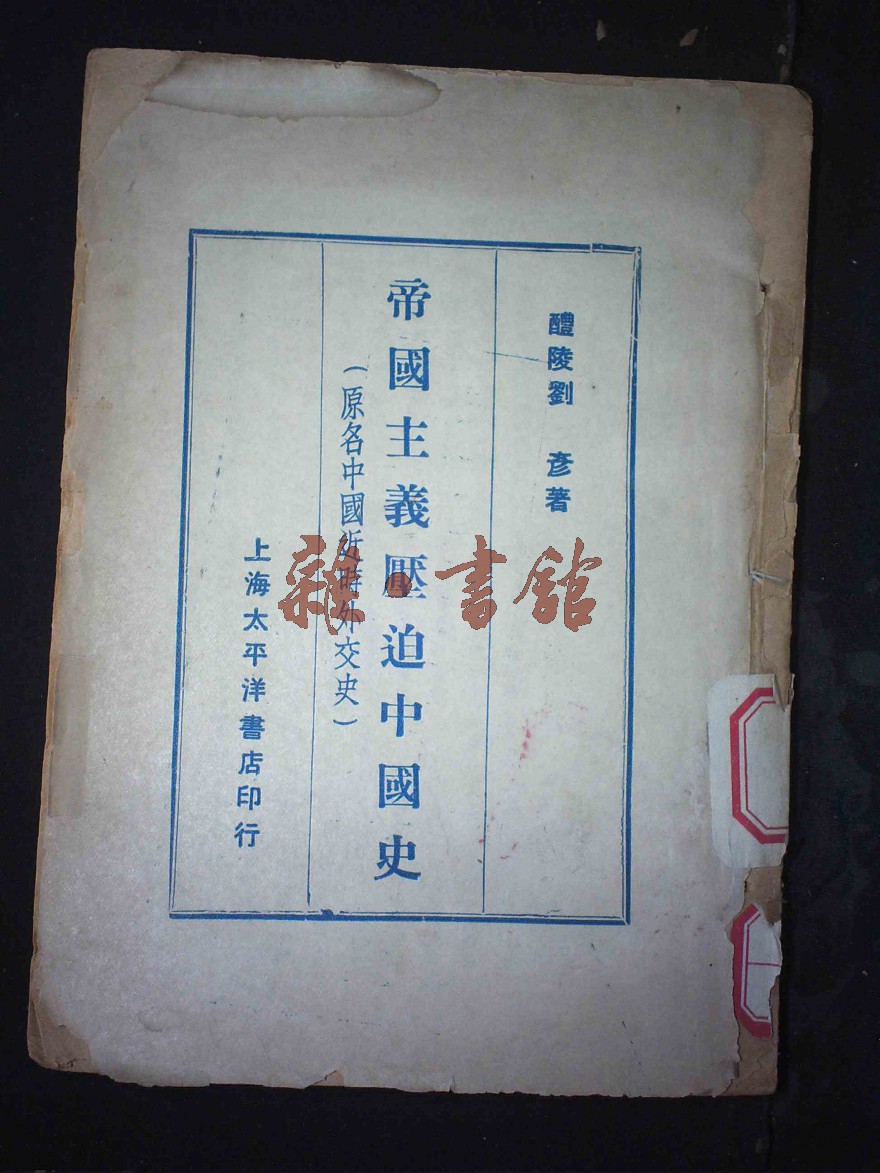 醴陵劉　彦著
帝國主義壓迫中國史
（原名中國近時外交史）
上海太平洋書店印行
雜·書館